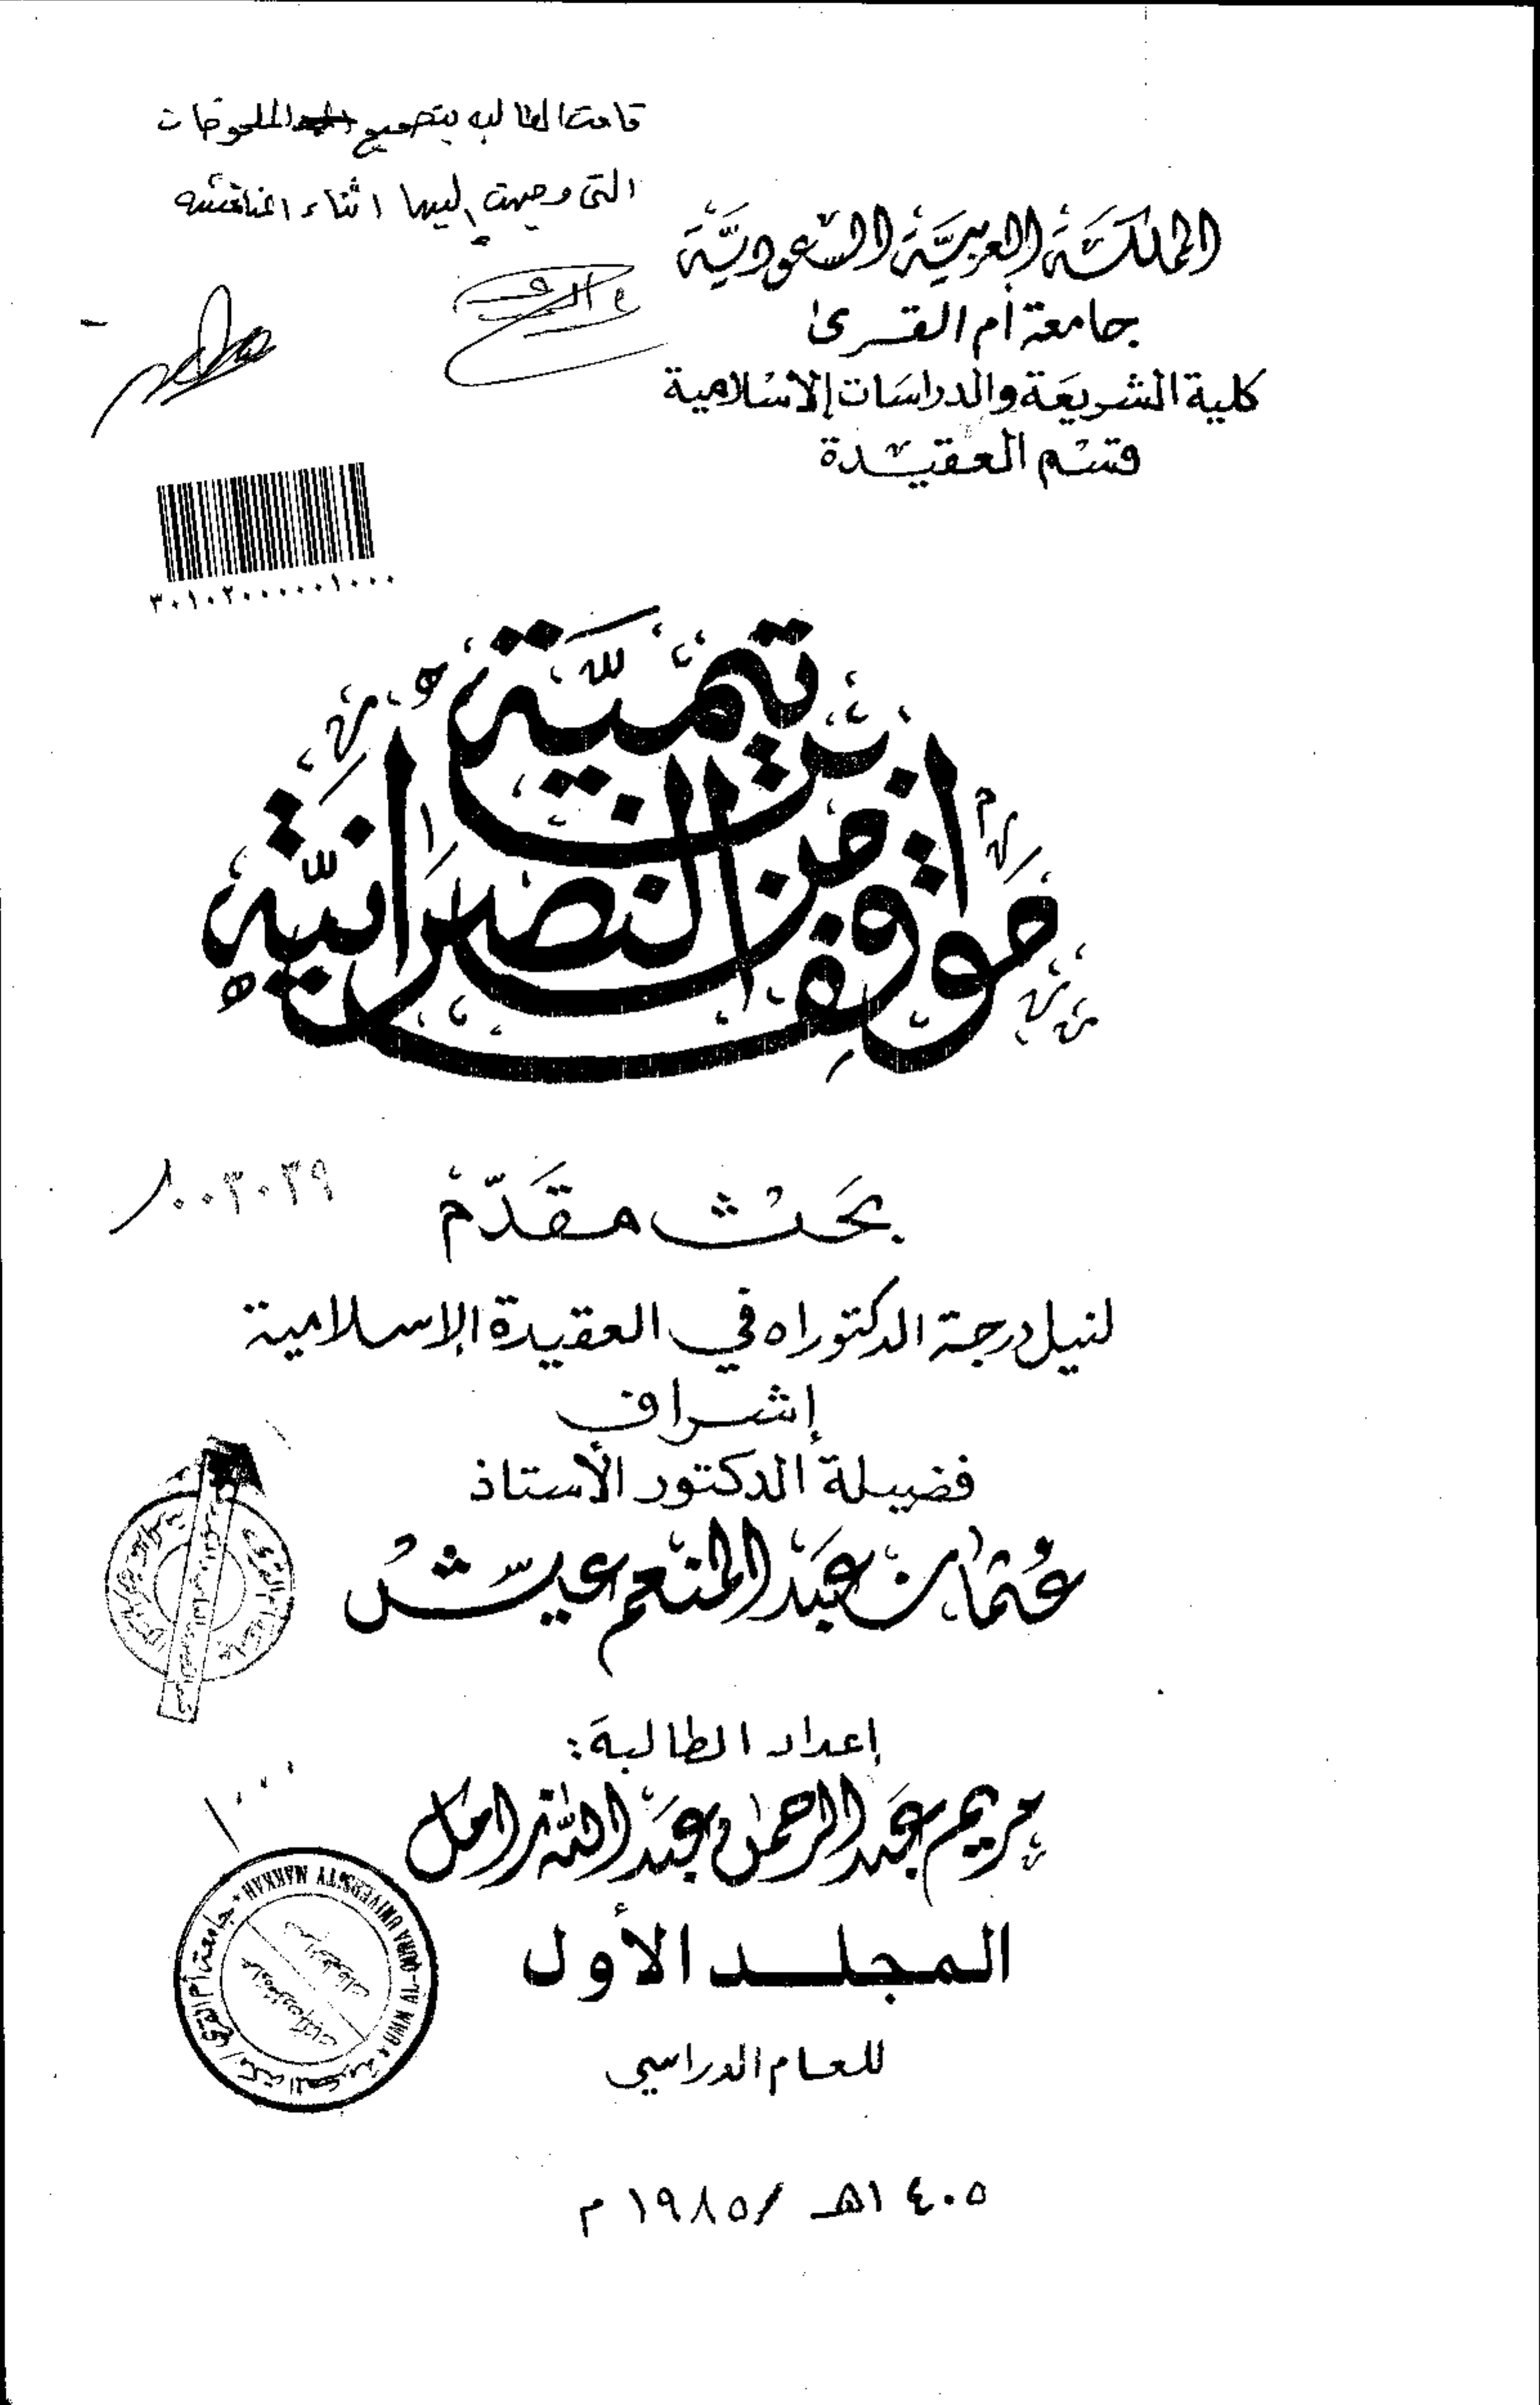 قامت الطالبه بتصحيح الملحوظات
التى وجهت إليها اثناء المناقشه
المملكة العربية السعودية
جامعة أم القرى
كلية الشريعة والدراسات الإسلامية
قسم العقيدة
٣٠١٠٢٠٠٠٠٠١٠٠٠
موقف ابن تيمية من النصرانية
بحث مقدم
٠٠٣٠٣٩
لنيل درجة الدكتوراه في العقيدة الإسلامية
إشراف
فضيلة الدكتور الأستاذ
عثمان عبد المنعم عيش
إعداد الطالبة:
مريم عبد الرحمن عبد الله زامل
١٠٠٠
المجلد الأول
جامعة أم القرى / مكة المكرمة
UMM AL-QURA UNIVERSITY MAKKAH
للعام الدراسي
١٤٠٥هـ / ١٩٨٥ م